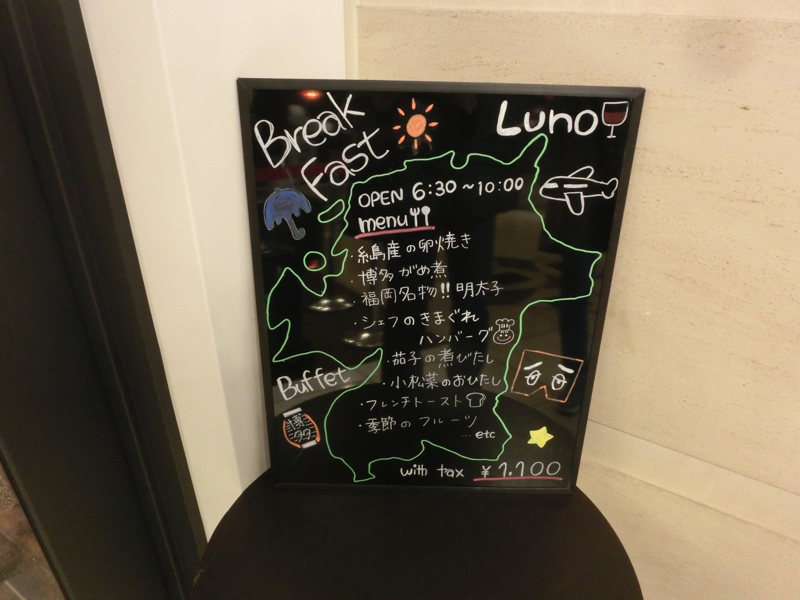 Break
Fast
Luno
OPEN 6:30～10:00
menu
・糸島産の卵焼き
・博多がめ煮
・福岡名物!!明太子
・シェフのきまぐれ
ハンバーグ
・茄子の煮びたし
・小松菜のおひたし
・フレンチトースト
・季節のフルーツ
...etc
Buffet
博多
with tax ¥1,100